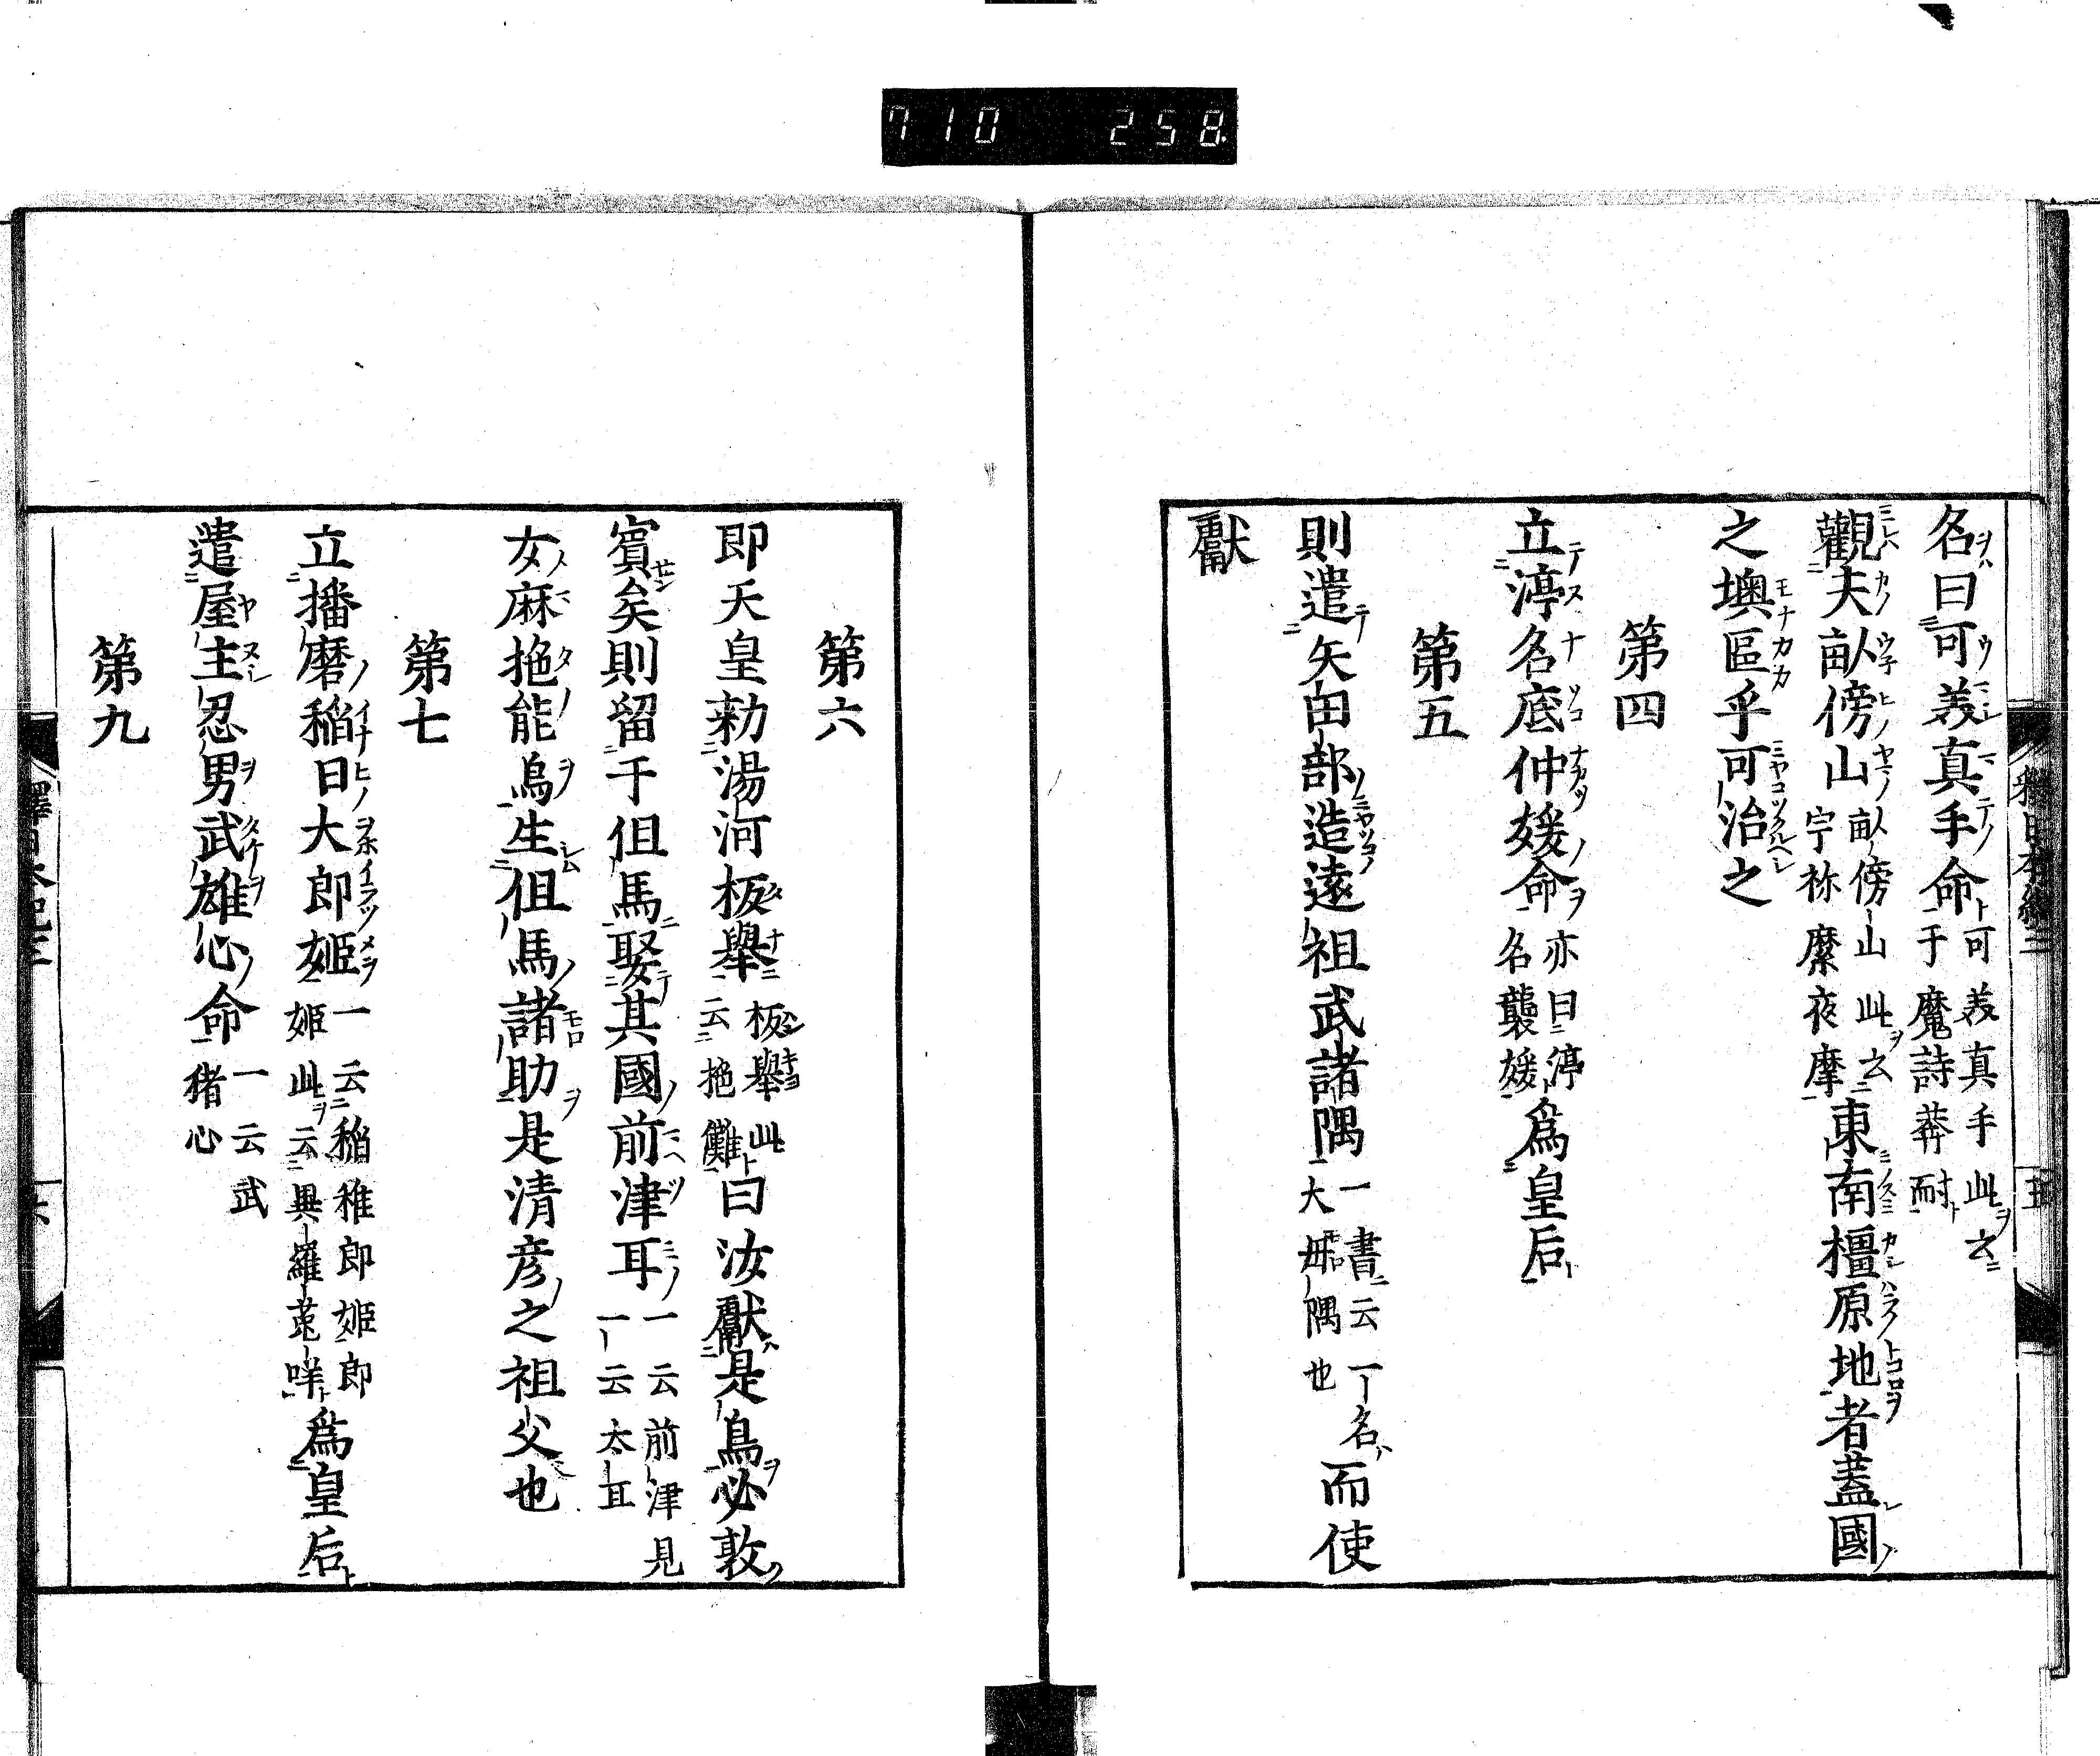 710 258
名曰可美真手命可美真手此云
于魔詩莽耐
觀夫畝傍山畝傍山此云
宇祢縻夜摩東南橿原地者蓋國
之墺區乎可治之
第四
立渟名底仲媛命亦曰渟
名襲媛為皇后
第五
則遣矢田部造遠祖武諸隅一書云一名
大母隅也而使
獻
五
第六
即天皇勅湯河板舉板舉此
云拕儺曰汝獻是鳥必敦
賞矣則留于但馬娶其國前津耳一云前津見
一云太耳
女麻拕能烏生但馬諸助是清彦之祖父也
第七
立播磨稲日大郎姫一云稲稚郎姫郎
姫此云異羅菟咩為皇后
遣屋主忍男武雄心命一云武
猪心
第九
六